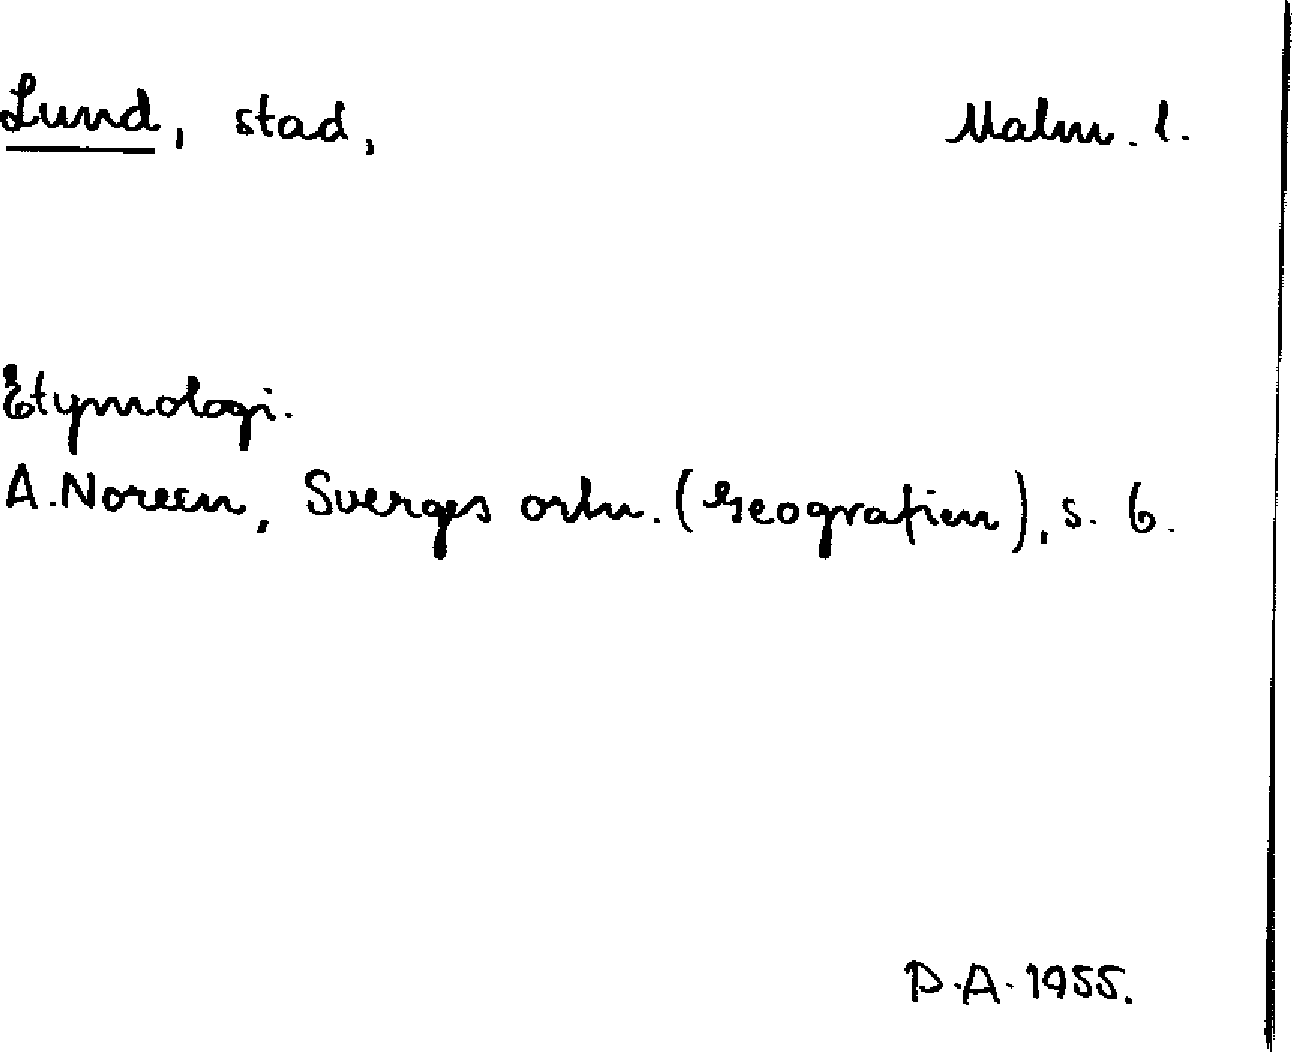 Lund, stad, Malm. l.
Etymologi.
A. Noreen, Sverges ortn. (Geografien), s. 6.
D.A. 1955.